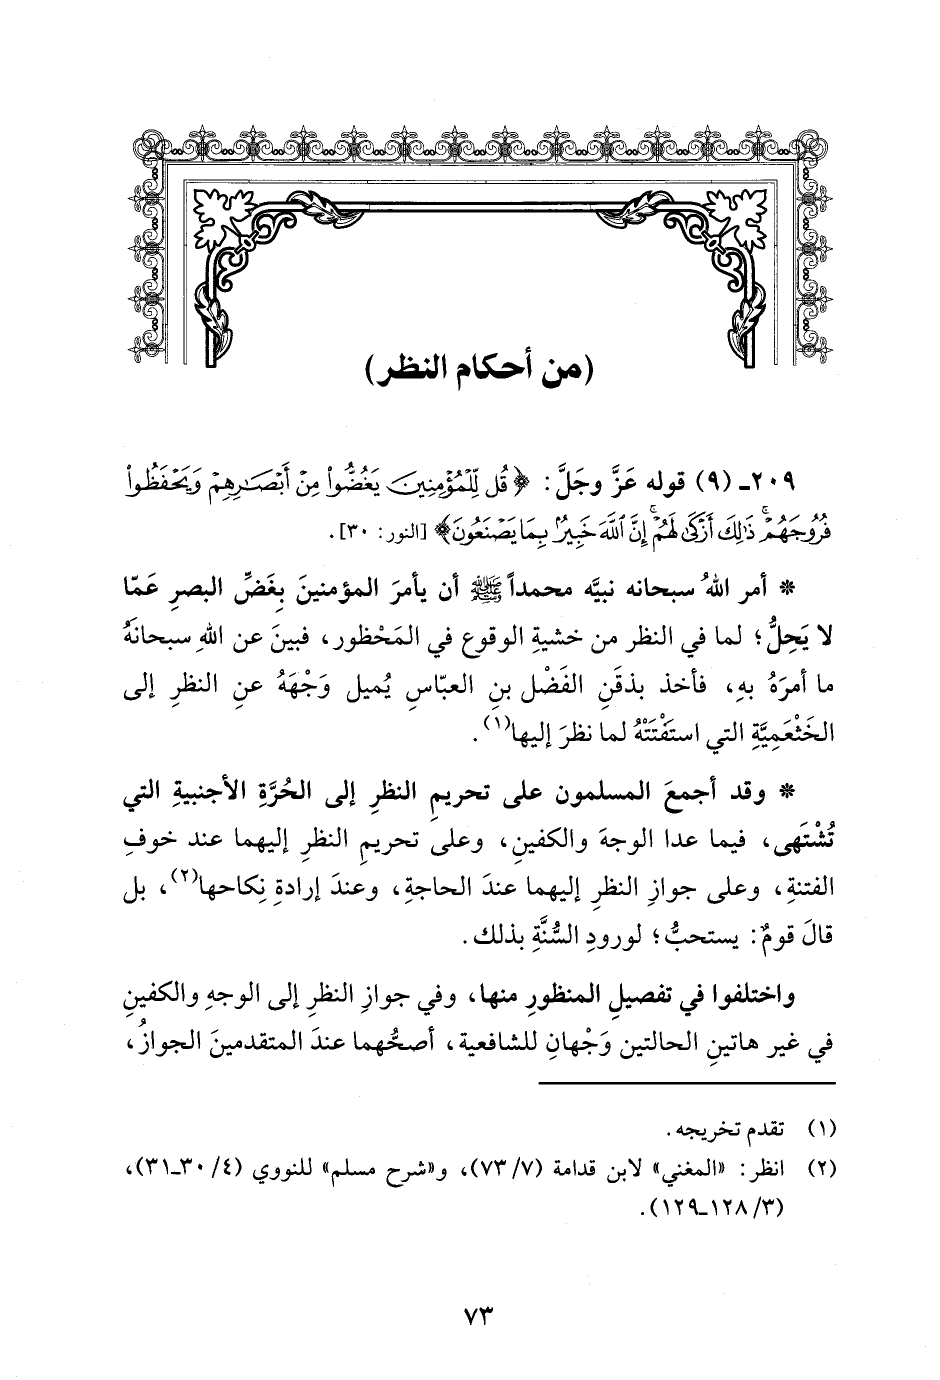 (من أحكام النظر)
٢٠٩ـ (٩) قوله عَزَّ وجَلَّ: ﴿قُل لِّلْمُؤْمِنِينَ يَغُضُّوا۟ مِنْ أَبْصَـٰرِهِمْ وَيَحْفَظُوا۟
فُرُوجَهُمْ ۚ ذَٰلِكَ أَزْكَىٰ لَهُمْ ۗ إِنَّ ٱللَّهَ خَبِيرٌۢ بِمَا يَصْنَعُونَ﴾ [النور: ٣٠].
* أمر اللهُ سبحانه نبيَّه محمداً ﷺ أن يأمرَ المؤمنينَ بِغَضِّ البصرِ عَمّا
لا يَحِلُّ؛ لما في النظر من خشيةِ الوقوع في المَحْظور، فبينَ عن اللهِ سبحانَهُ
ما أمرَهُ بهِ، فأخذ بذقَنِ الفَضْل بنِ العبّاسِ يُميل وَجْهَهُ عنِ النظرِ إلى
الخَثْعَمِيَّةِ التي استَفْتَتْهُ لما نظرَ إليها(١).
* وقد أجمعَ المسلمون على تحريمِ النظرِ إلى الحُرَّةِ الأجنبيةِ التي
تُشْتَهى، فيما عدا الوجهَ والكفينِ، وعلى تحريمِ النظرِ إليهما عند خوفِ
الفتنةِ، وعلى جوازِ النظرِ إليهما عندَ الحاجةِ، وعندَ إرادةِ نِكاحها(٢)، بل
قالَ قومٌ: يستحبُّ؛ لورودِ السُّنَّةِ بذلك.
واختلفوا في تفصيلِ المنظورِ منها، وفي جوازِ النظرِ إلى الوجهِ والكفينِ
في غير هاتينِ الحالتين وَجْهانِ للشافعية، أصحُّهما عندَ المتقدمينَ الجوازُ،
(١) تقدم تخريجه.
(٢) انظر: «المغني» لابن قدامة (٧/ ٧٣)، و«شرح مسلم» للنووي (٤/ ٣٠ـ٣١)،
(٣/ ١٢٨ـ١٢٩).
٧٣